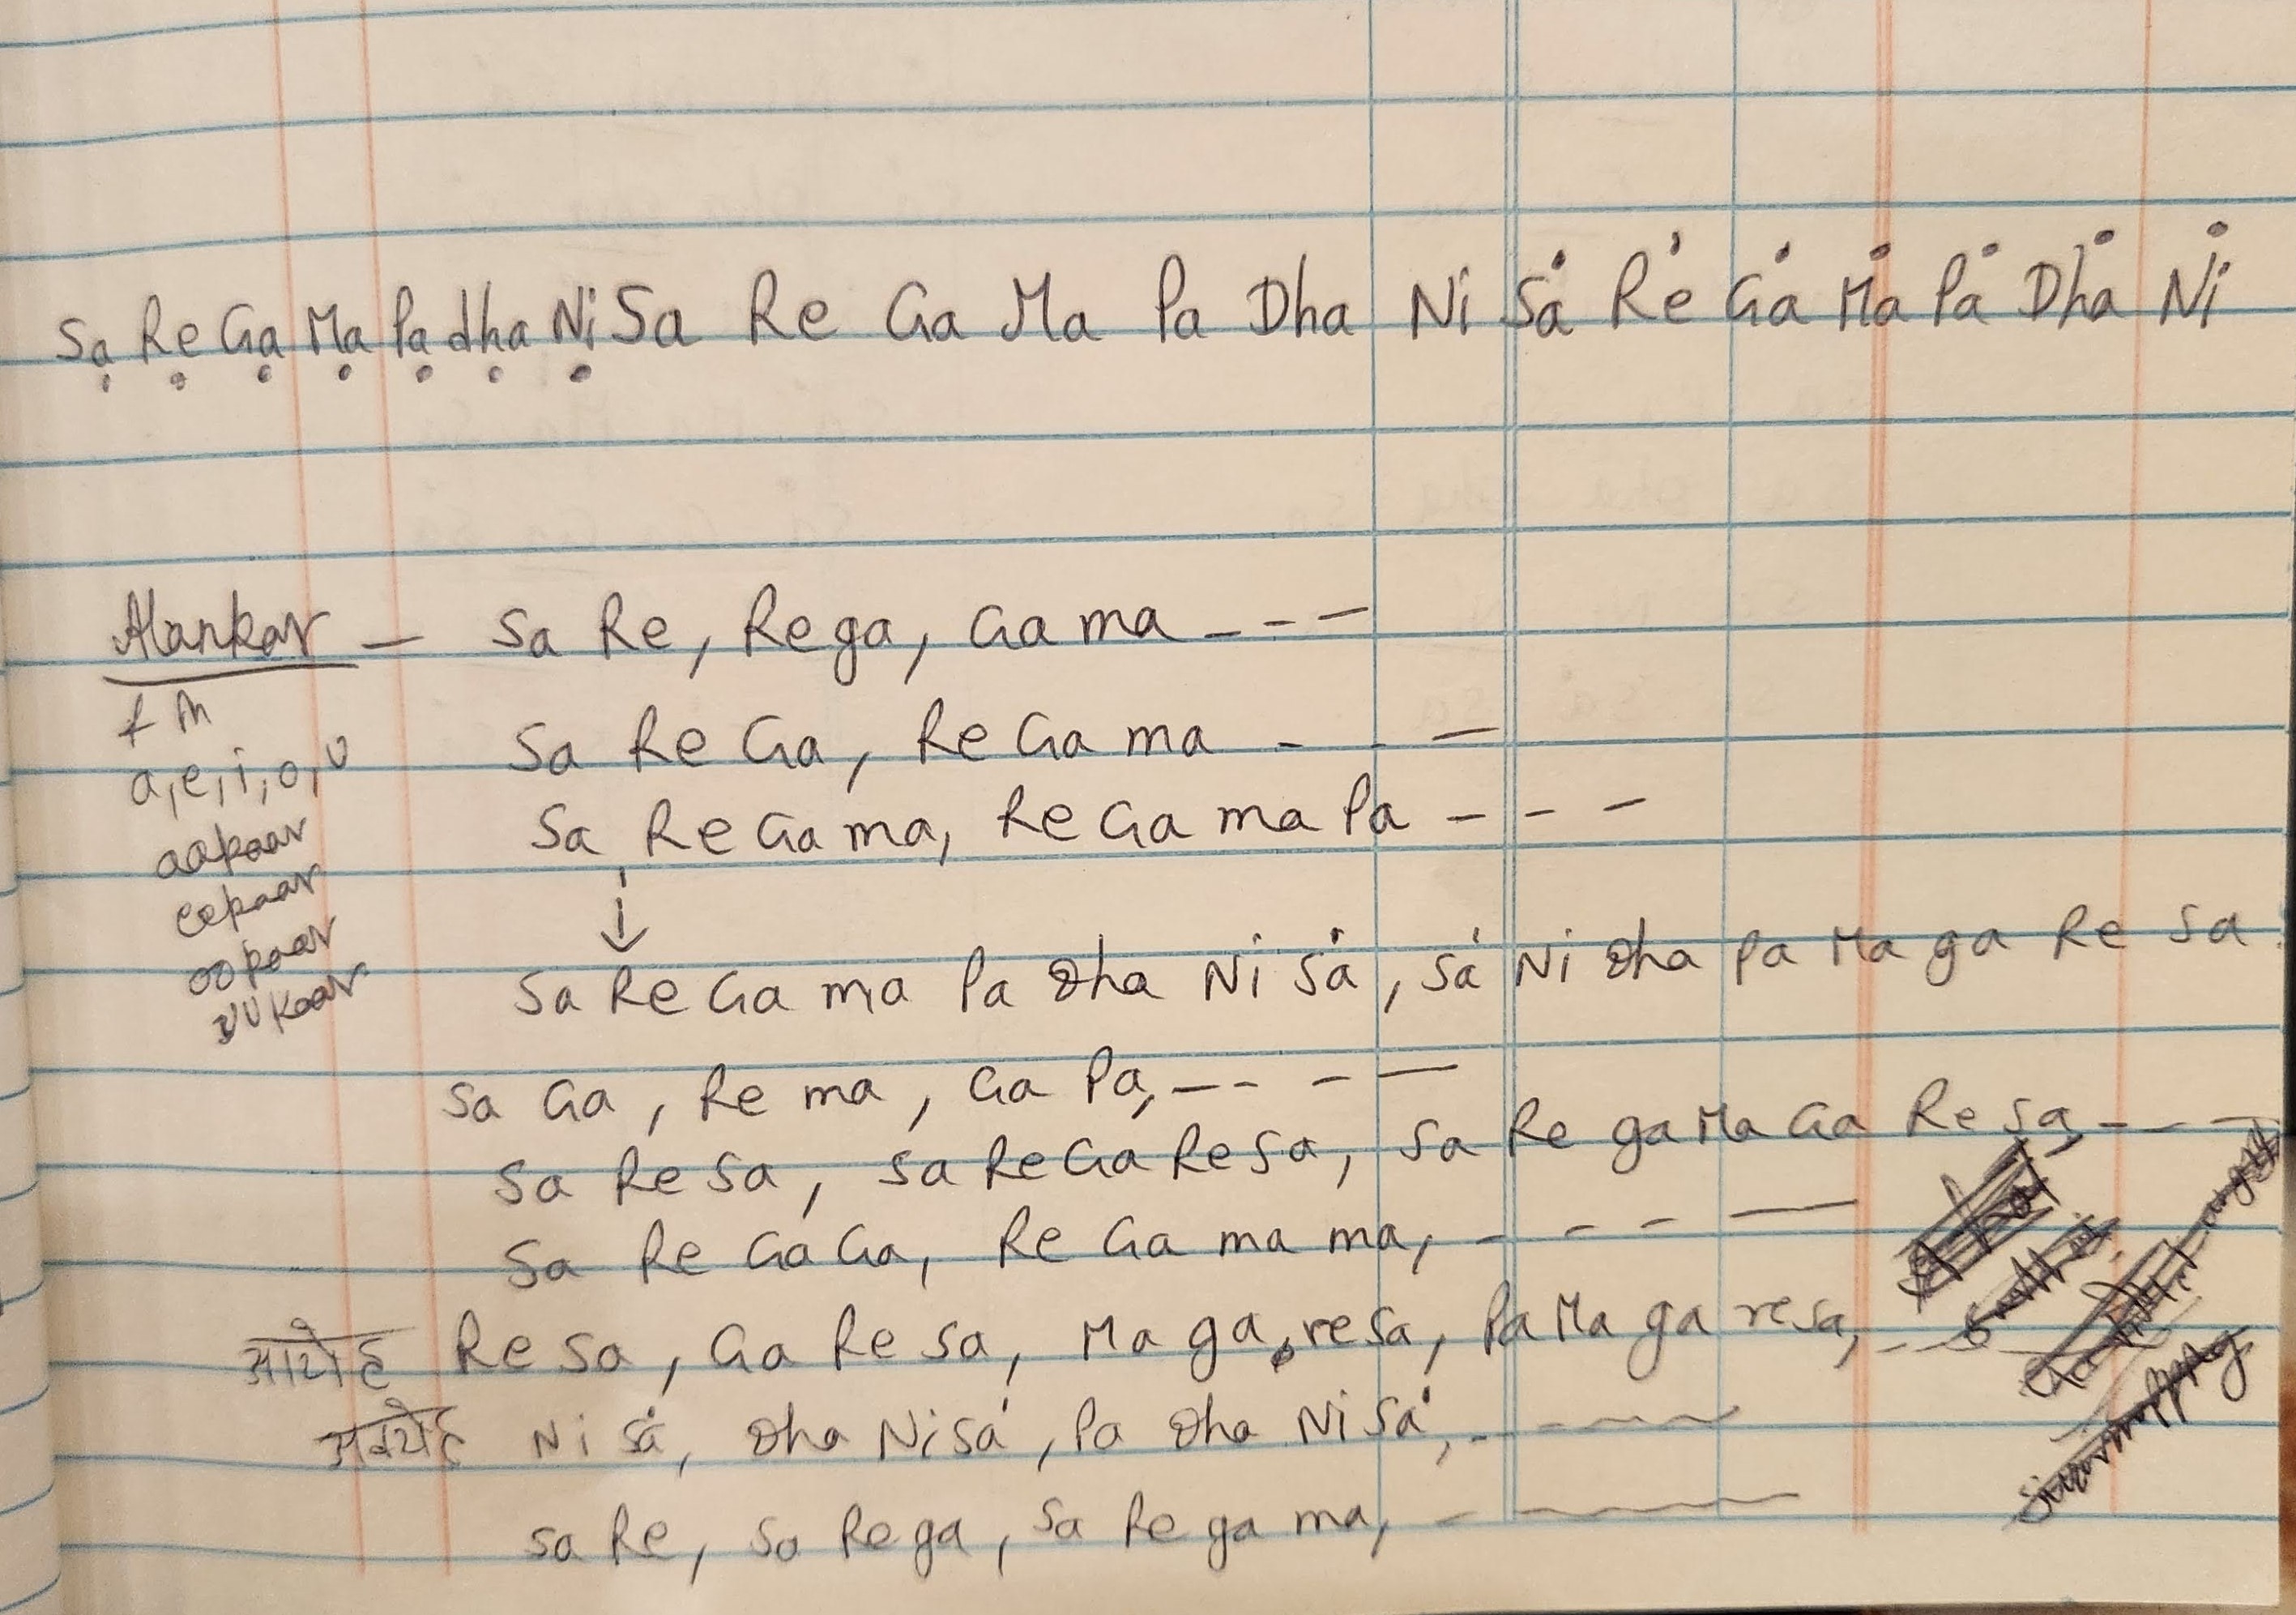 Sạ Rẹ Gạ Mạ Pạ dhạ Nị Sa Re Ga Ma Pa Dha Ni Ṡa Ṙe Ġa Ṁa Ṗa Ḋha Ṅi
Alankar – Sa Re, Re ga, Ga ma - - -
Sa Re Ga, Re Ga ma - - -
a, e, i, o, u
Sa Re Ga ma, Re Ga ma Pa - - -
aakaar
eekaar
↓
ookaar
Sa Re Ga ma Pa Dha Ni Ṡa, Ṡa Ni Dha Pa Ma ga Re Sa
uukaar
Sa Ga, Re ma, Ga Pa, - - - -
Sa Re Sa, Sa Re Ga Re Sa, Sa Re ga Ma Ga Re Sa, - - -
Sa Re Ga Ga, Re Ga ma ma, - - - -
आरोह Re Sa, Ga Re Sa, Ma ga, re sa, Pa Ma ga re sa, - - -
अवरोह Ni Ṡa, Dha Ni Ṡa, Pa Dha Ni Ṡa, - - - -
Sa Re, Sa Re ga, Sa Re ga ma, - - -